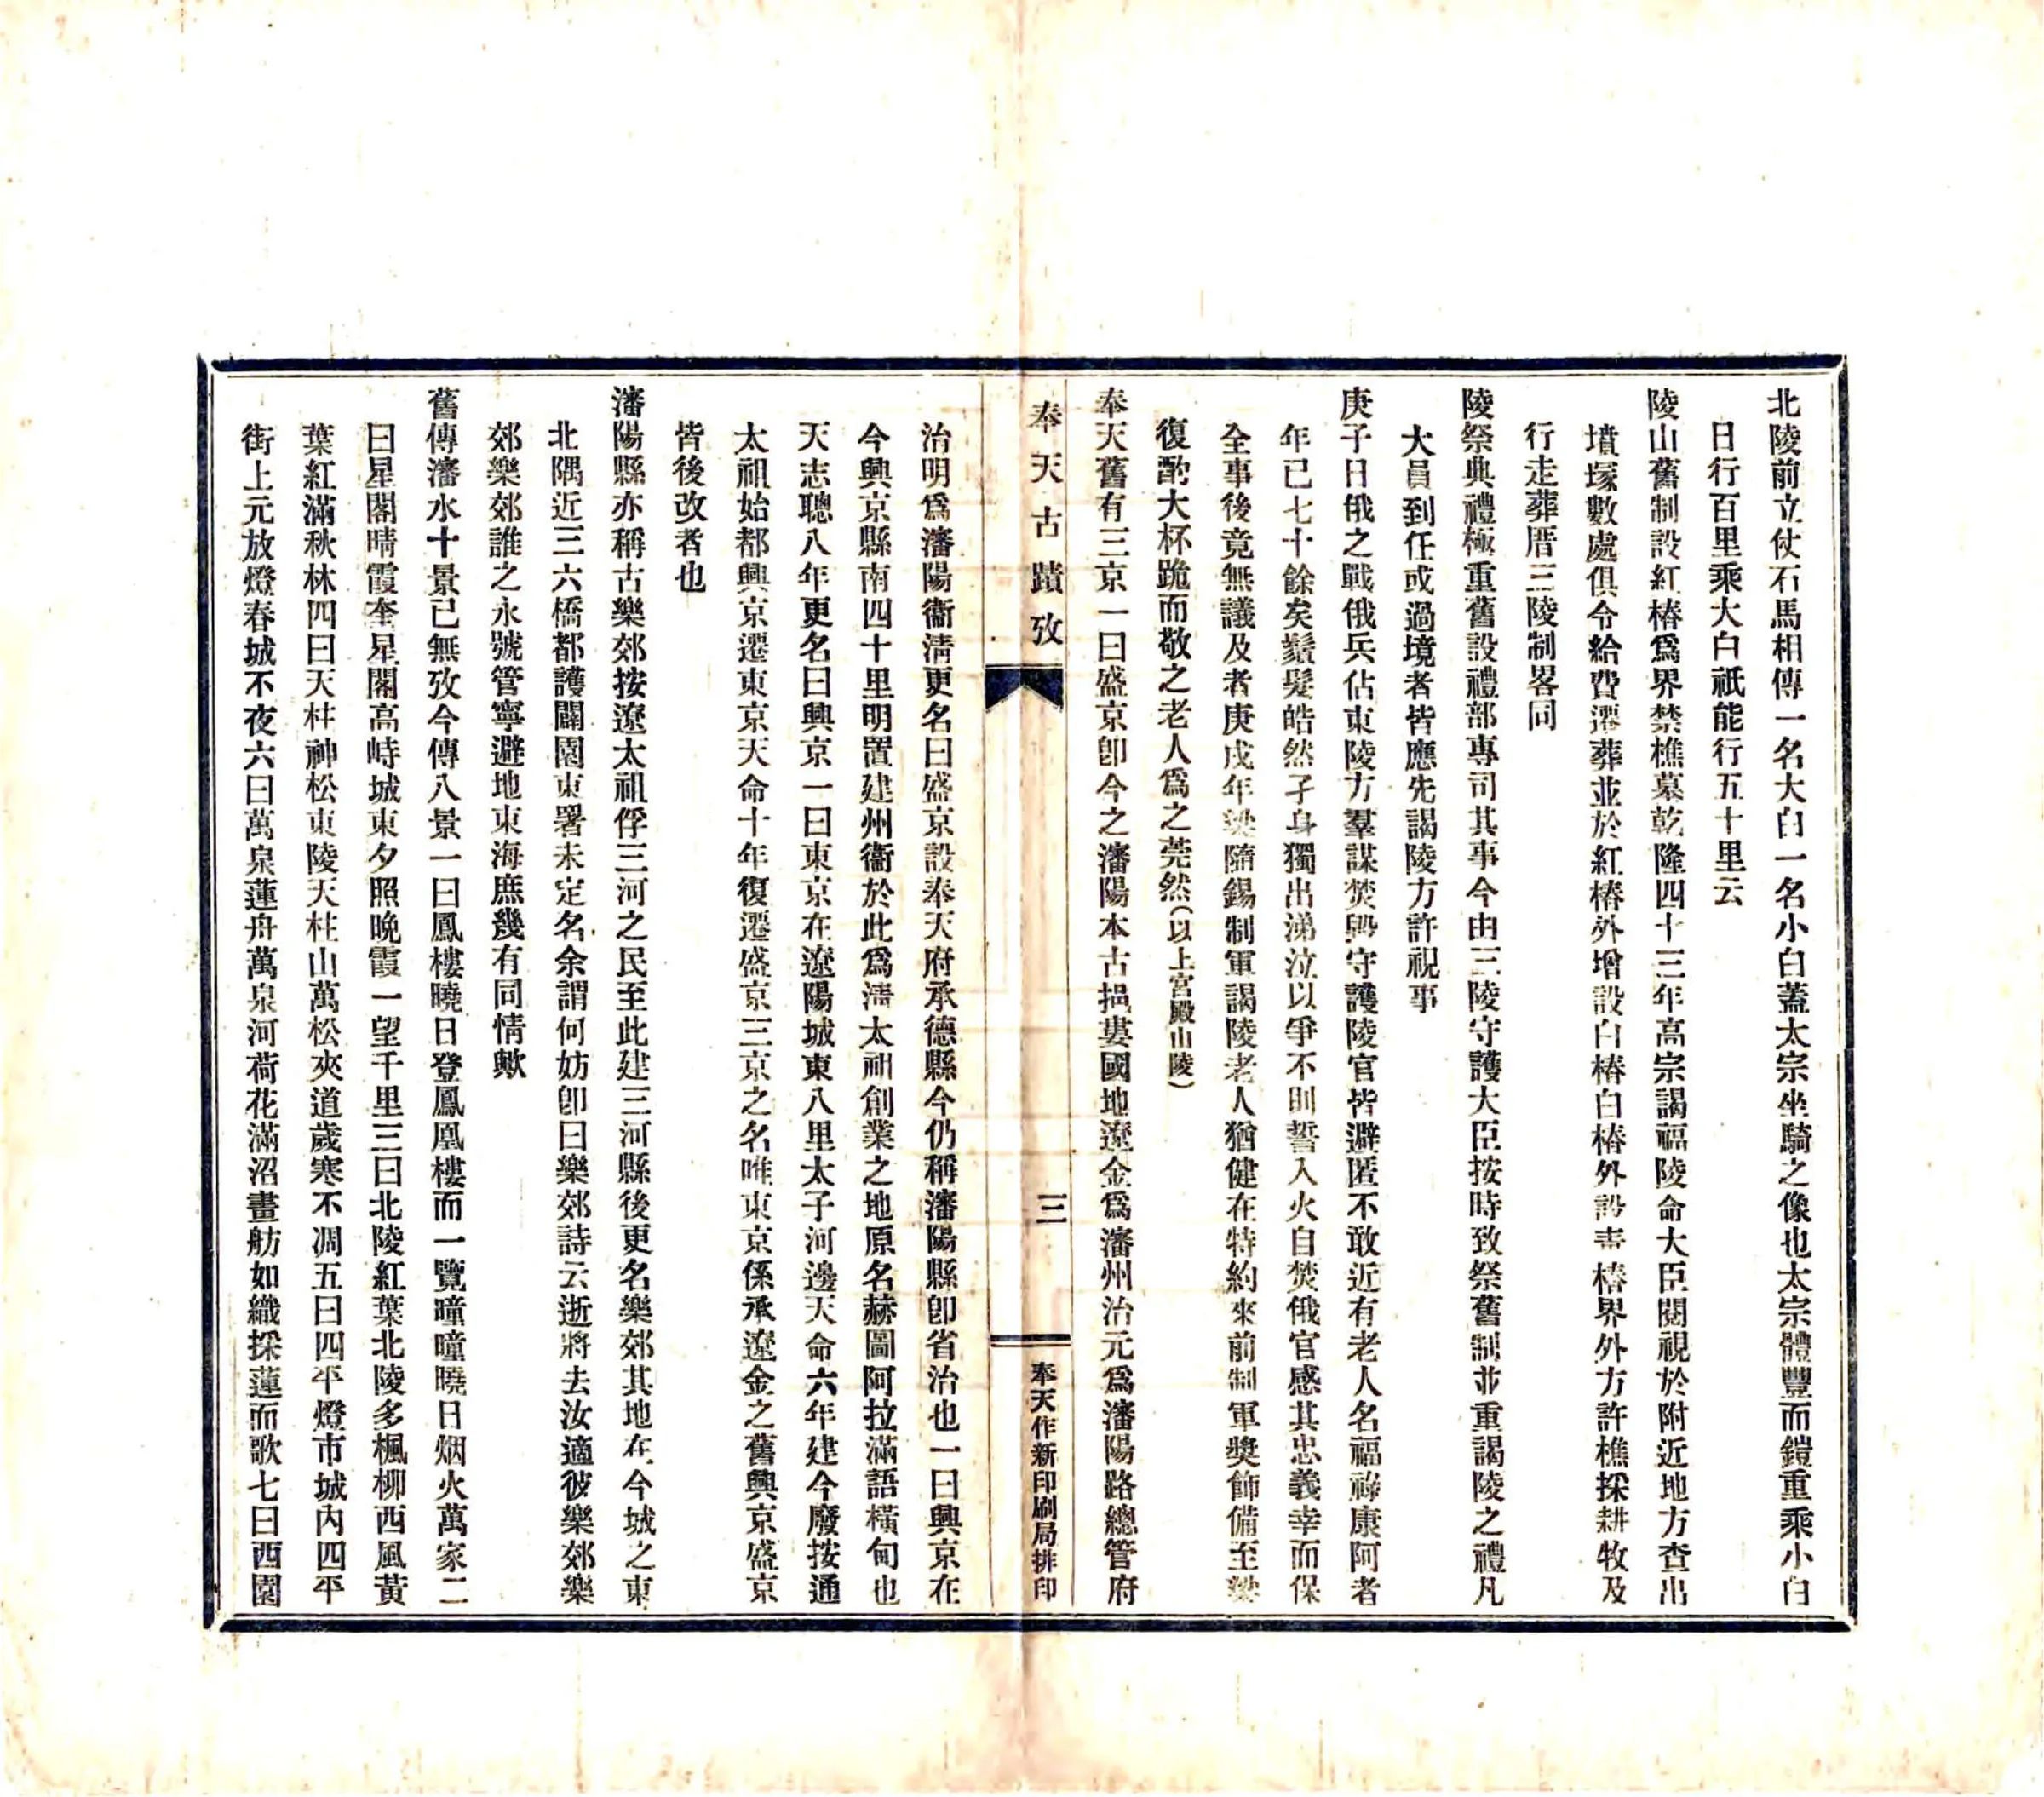 北陵前立仗石馬相傳一名大白一名小白蓋太宗坐騎之像也太宗體豐而鎧重乘小白
日行百里乘大白祇能行五十里云
陵山舊制設紅樁爲界禁樵蘇乾隆四十三年高宗謁福陵命大臣閱視於附近地方查出
墳塚數處俱令給費遷葬並於紅樁外增設白樁白樁外設靑樁界外方許樵採耕牧及
行走葬厝三陵制畧同
陵祭典禮極重舊設禮部專司其事今由三陵守護大臣按時致祭舊制並重謁陵之禮凡
大員到任或過境者皆應先謁陵方許視事
庚子日俄之戰俄兵佔東陵方羣謀焚燬守護陵官皆避匿不敢近有老人名福祿康阿者
年已七十餘矣鬚髮皓然孑身獨出涕泣以爭不則誓入火自焚俄官感其忠義幸而保
全事後竟無議及者庚戌年梁隨錫制軍謁陵老人猶健在特約來前制軍獎飾備至梁
復酌大杯跪而敬之老人爲之莞然(以上宮殿山陵)
奉天舊有三京一曰盛京卽今之瀋陽本古挹婁國地遼金爲瀋州治元爲瀋陽路總管府
奉天古蹟攷
三
奉天作新印刷局排印
治明爲瀋陽衞淸更名曰盛京設奉天府承德縣今仍稱瀋陽縣卽省治也一曰興京在
今興京縣南四十里明置建州衞於此爲淸太祖創業之地原名赫圖阿拉滿語橫甸也
天志聰八年更名曰興京一曰東京在遼陽城東八里太子河邊天命六年建今廢按通
太祖始都興京遷東京天命十年復遷盛京三京之名唯東京係承遼金之舊興京盛京
皆後改者也
瀋陽縣亦稱古樂郊按遼太祖俘三河之民至此建三河縣後更名樂郊其地在今城之東
北隅近三六橋都護闢園東署未定名余謂何妨卽曰樂郊詩云逝將去汝適彼樂郊樂
郊樂郊誰之永號管寧避地東海庶幾有同情歟
舊傳瀋水十景已無攷今傳八景一曰鳳樓曉日登鳳凰樓而一覽曈曈曉日烟火萬家二
曰星閣晴霞奎星閣高峙城東夕照晩霞一望千里三曰北陵紅葉北陵多楓柳西風黃
葉紅滿秋林四曰天柱神松東陵天柱山萬松夾道歲寒不凋五曰四平燈市城內四平
街上元放燈春城不夜六曰萬泉蓮舟萬泉河荷花滿沼畫舫如織採蓮而歌七曰西園